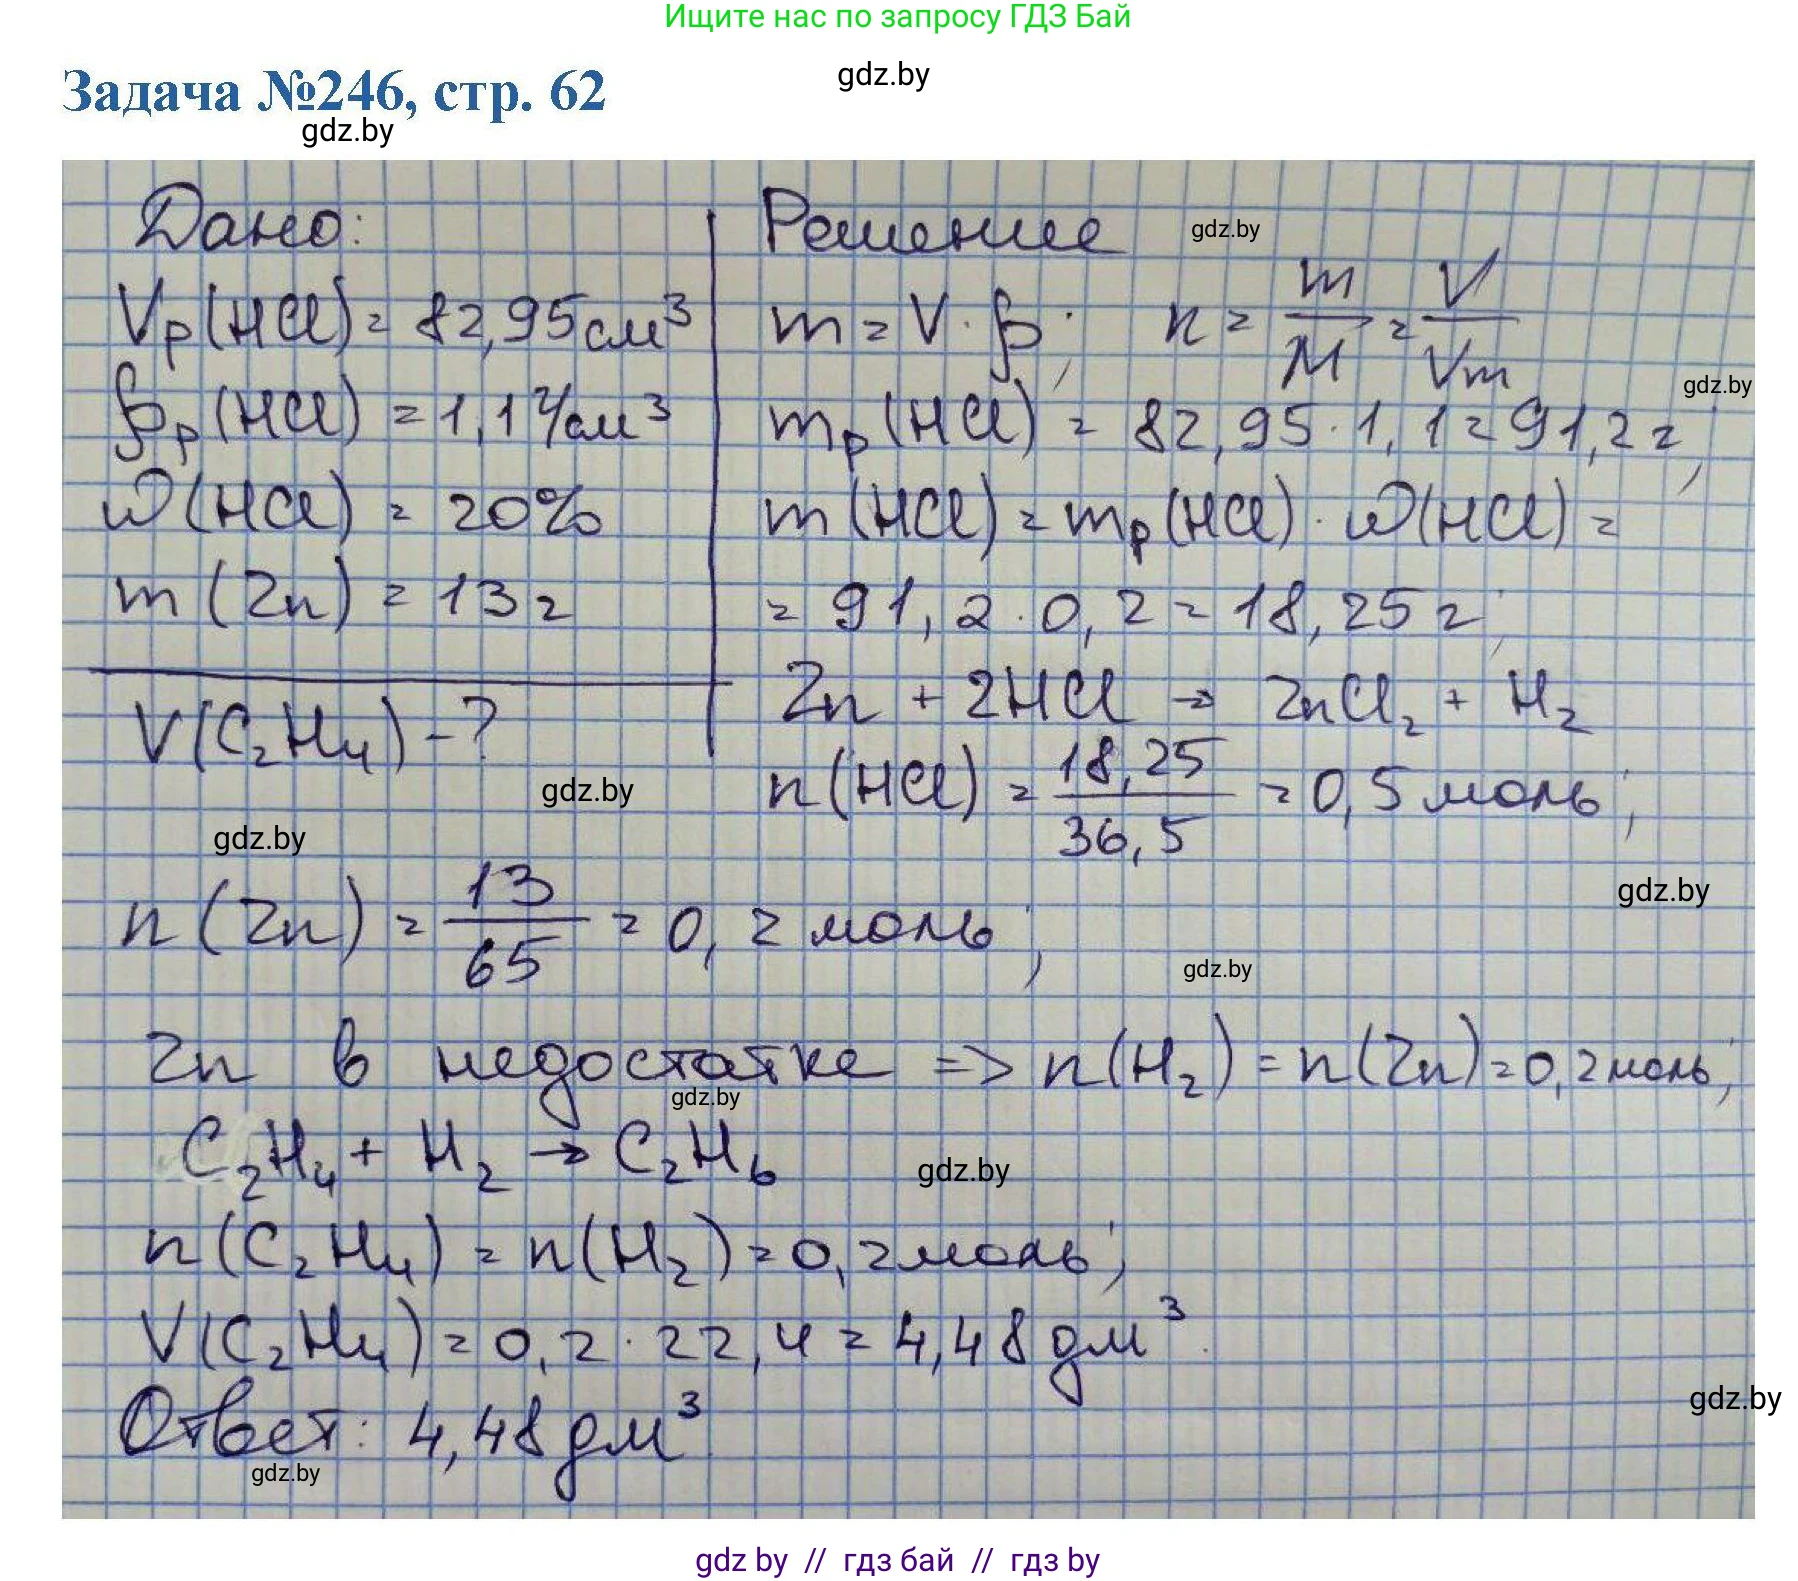 Ищите нас по запросу ГДЗ Бай
gdz.by
Задача №246, стр. 62
gdz.by
Дано:
Vр(HCl) = 82,95 см³
ρр(HCl) = 1,1 г/см³
ω(HCl) = 20%
m(Zn) = 13 г
V(C₂H₄) - ?
gdz.by
gdz.by
Решение
gdz.by
m = V · ρ; n = m/M = V/Vm
gdz.by
mр(HCl) = 82,95 · 1,1 = 91,2 г;
m(HCl) = mр(HCl) · ω(HCl) =
= 91,2 · 0,2 = 18,25 г;
Zn + 2HCl → ZnCl₂ + H₂
n(HCl) = 18,25/36,5 = 0,5 моль;
gdz.by
n(Zn) = 13/65 = 0,2 моль;
gdz.by
Zn в недостатке => n(H₂) = n(Zn) = 0,2 моль;
gdz.by
C₂H₄ + H₂ → C₂H₆
gdz.by
n(C₂H₄) = n(H₂) = 0,2 моль;
V(C₂H₄) = 0,2 · 22,4 = 4,48 дм³.
gdz.by
Ответ: 4,48 дм³
gdz.by
gdz by // гдз бай // гдз by